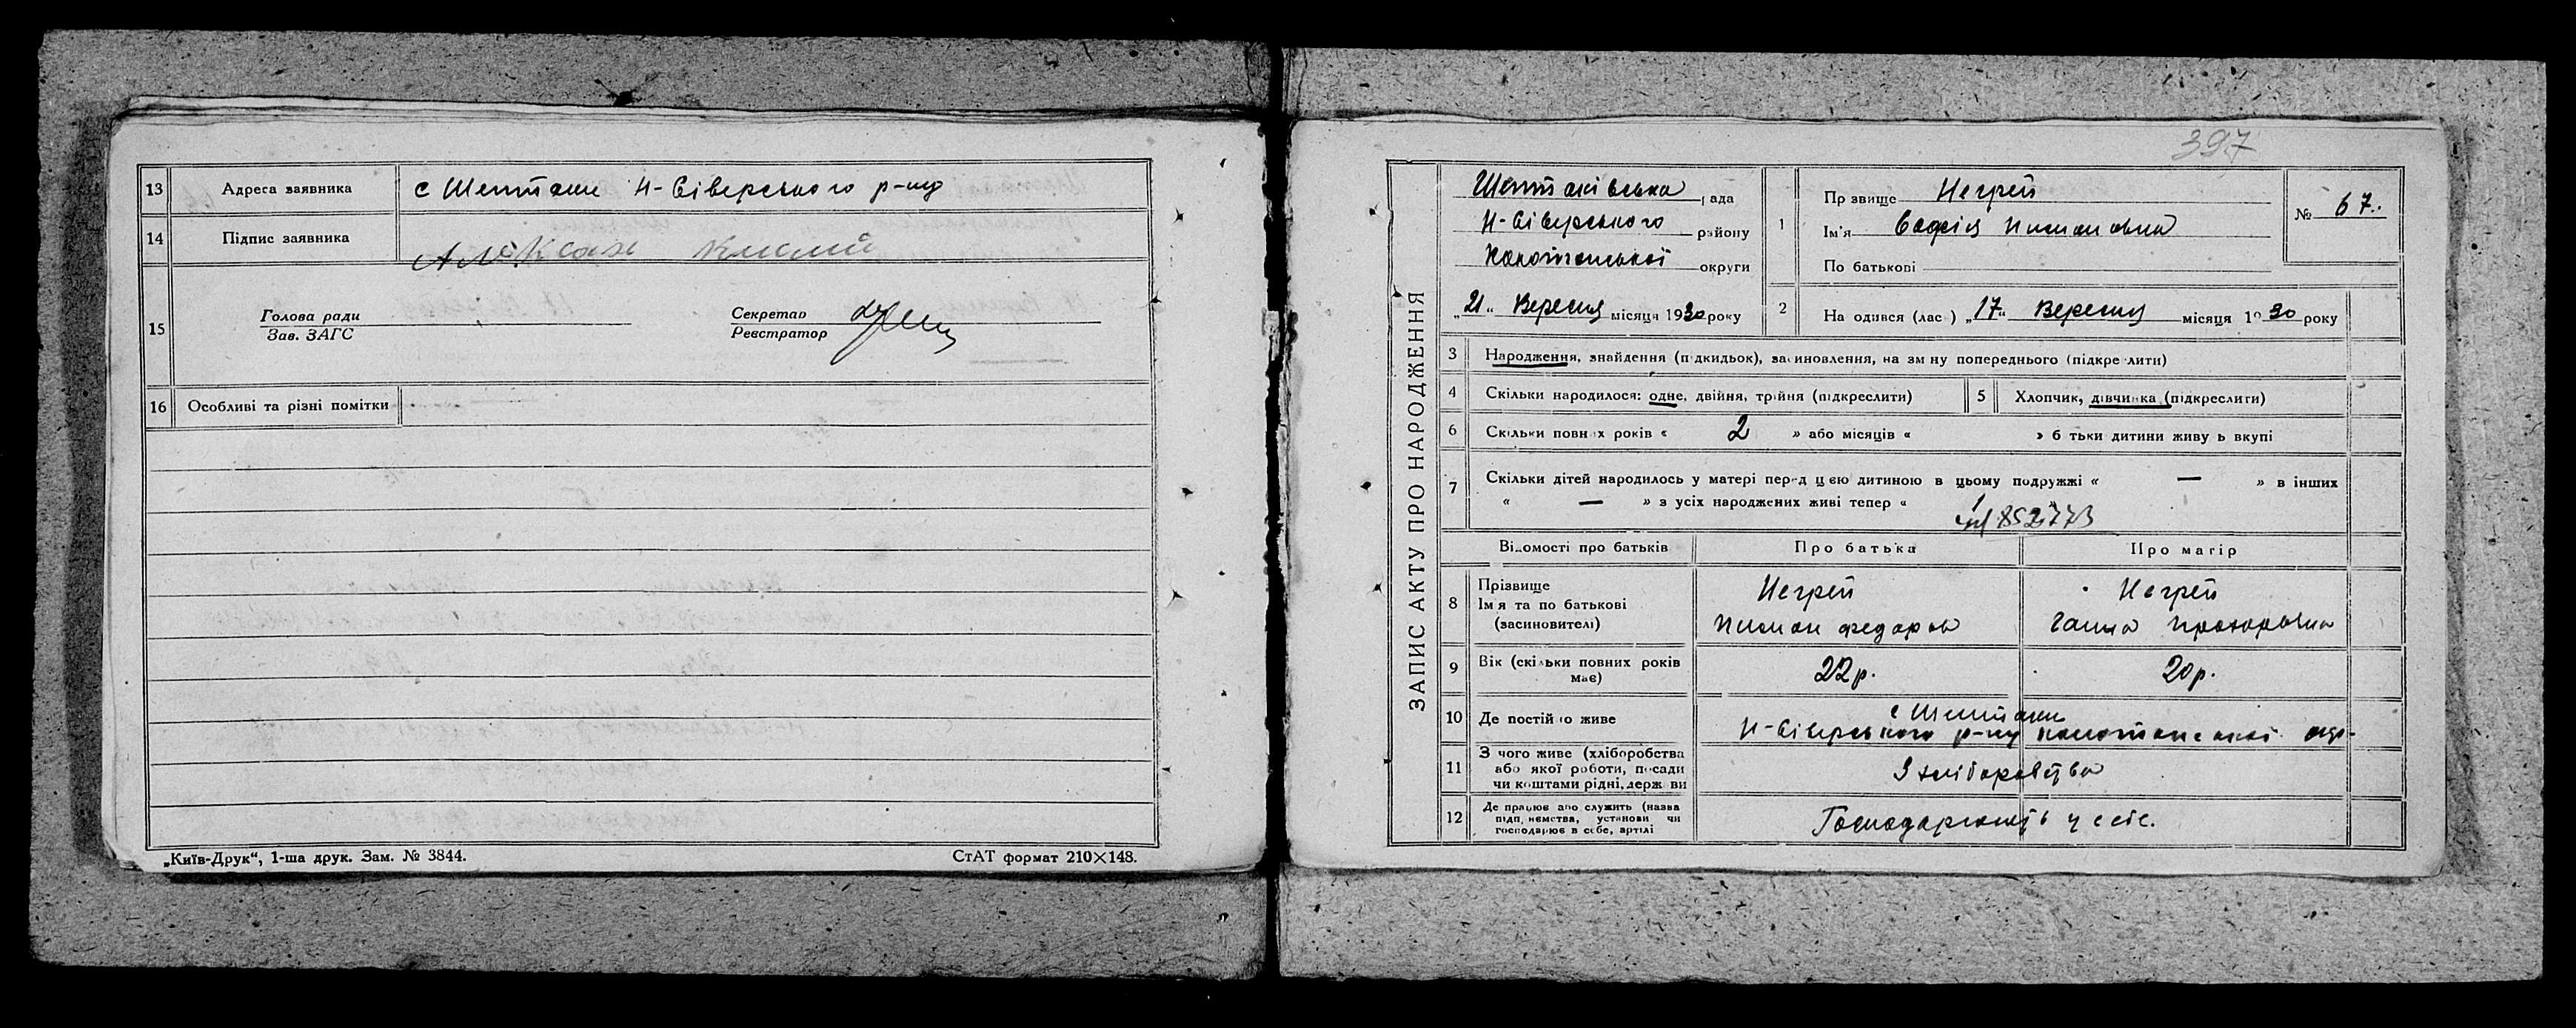 13 Адреса заявника с Шептаки Н-Сіверського р-ну
14 Підпис заявника
15 Голова ради
Зав. ЗАГС
Секретар
Реєстратор
16 Особливі та різні помітки
„Київ-Друк“, 1-ша друк. Зам. № 3844.
СтАТ формат 210×148.
397
ЗАПИС АКТУ ПРО НАРОДЖЕННЯ
Шептаківська рада
Н-Сіверського району
Конотопської округи
„21“ Вересня місяця 1930 року
1 Прізвище Негрей
Ім'я Софія Пилиповна
По батькові
№ 67.
2 Народився (лась) „17“ Вересня місяця 1930 року
3 Народження, знайдення (підкидьок), засиновлення, на зміну попереднього (підкреслити)
4 Скільки народилося: одне, двійня, трійня (підкреслити)
5 Хлопчик, дівчинка (підкреслити)
6 Скільки повних років « 2 » або місяців « » батьки дитини живуть вкупі
7 Скільки дітей народилось у матері перед цією дитиною в цьому подружжі « — » в інших
« — » з усіх народжених живі тепер «
852773
Відомості про батьків Про батька Про матір
8 Прізвище
Ім'я та по батькові
(засиновителі)
Негрей
федоров
Негрей
Ганна Прохоровна
9 Вік (скільки повних років має) 22р. 20р.
10 Де постійно живе с Шептаки
Н-Сіверського р-ну Конотопської окр-
11 З чого живе (хліборобства
або якої роботи, посади
чи коштами рідні, держави
З хліборобства
12 Де працює або служить (назва
підприємства, установи чи
господарює в себе, артілі
Господарюють у себе.